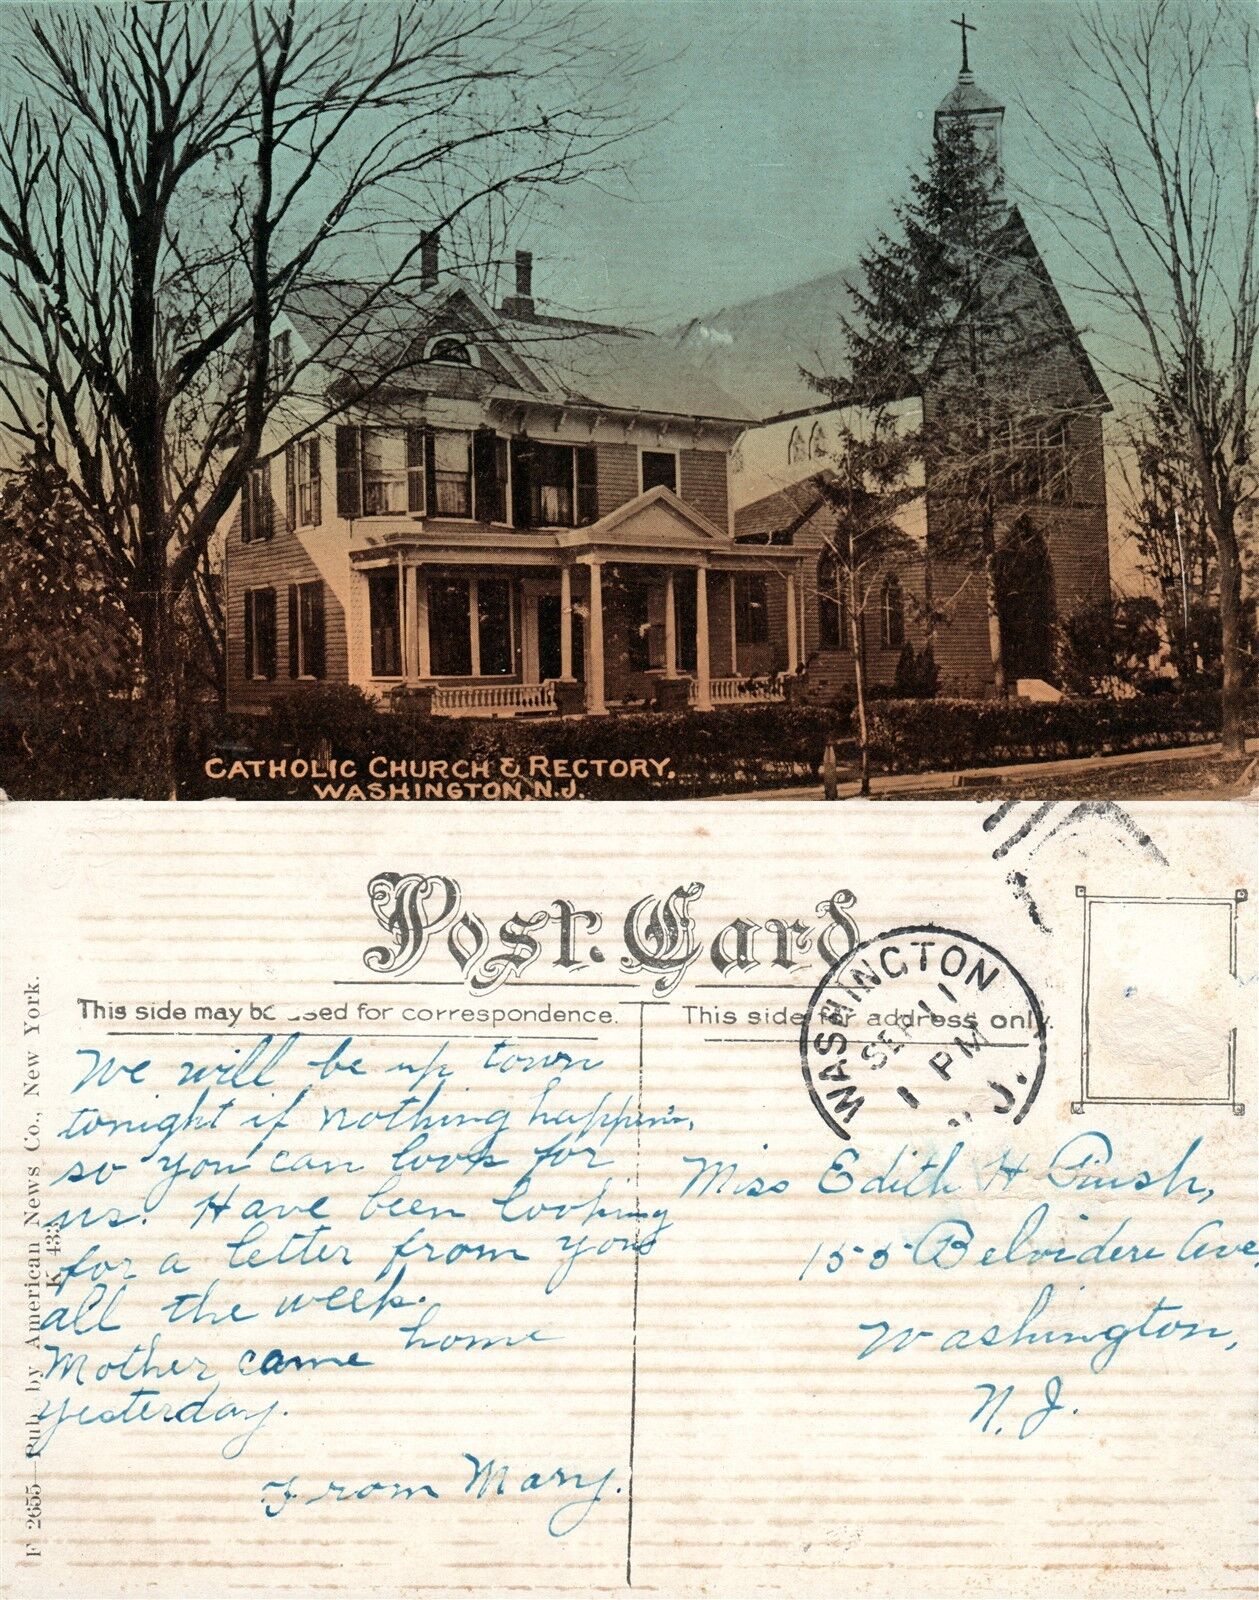 CATHOLIC CHURCH & RECTORY.
WASHINGTON, N.J.
Post Card
This side may be used for correspondence.
This side for address only.
WASHINGTON
SEP 11
1 PM
N.J.
We will be up town
tonight if nothing happens,
so you can look for
us. Have been looking
for a letter from you
all the week.
Mother came home
yesterday.
From Mary.
Miss Edith H
155 Belvidere Ave,
Washington,
N. J.
F 2655—Pub. by American News Co., New York.